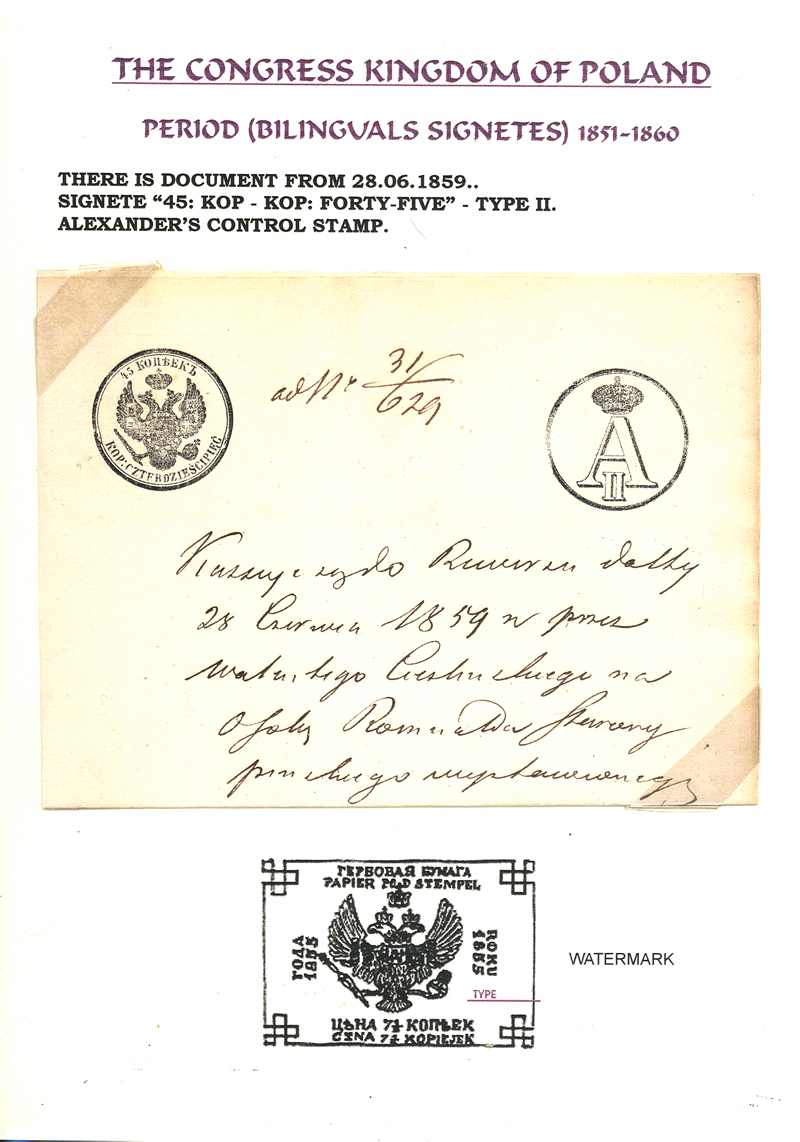 THE CONGRESS KINGDOM OF POLAND
PERIOD (BILINGUALS SIGNETES) 1851-1860
THERE IS DOCUMENT FROM 28.06.1859..
SIGNETE “45: KOP - KOP: FORTY-FIVE” - TYPE II.
ALEXANDER'S CONTROL STAMP.
45 КОПѢЕКЪ
KOP: CZTERDZIEŚCI PIĘĆ
ad Nr 31/629
A
II
do Rewersu daty
28 Czerwca 1859 r przez
na
Osobę Romualda
wystawionego
ГЕРБОВАЯ БУМАГА
PAPIER POD STEMPEL
ГОДА 1855
ROKU 1855
TYPE
ЦѢНА 7½ КОПѢЕК
CENA 7½ KOPIEJEK
WATERMARK